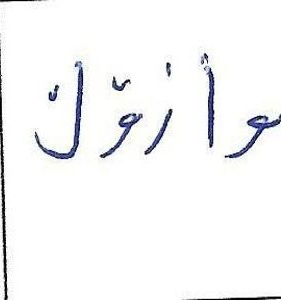 وأزوّل